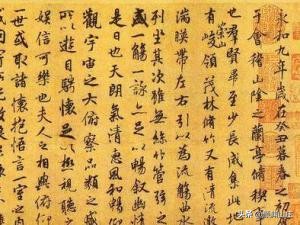 永和九年歲在癸丑暮春之初
于會稽山陰之蘭亭脩禊
也羣賢畢至少長咸集此地
有崇山峻領茂林脩竹又有清流激
湍暎帶左右引以為流觴曲水
列坐其次雖無絲竹管弦之
盛一觴一詠亦足以暢敘幽情
是日也天朗氣清惠風和暢仰
觀宇宙之大俯察品類之盛
所以遊目騁懷足以極視聽
娛信可樂也夫人之相與俯仰
一世或取諸懷抱悟言一室之內